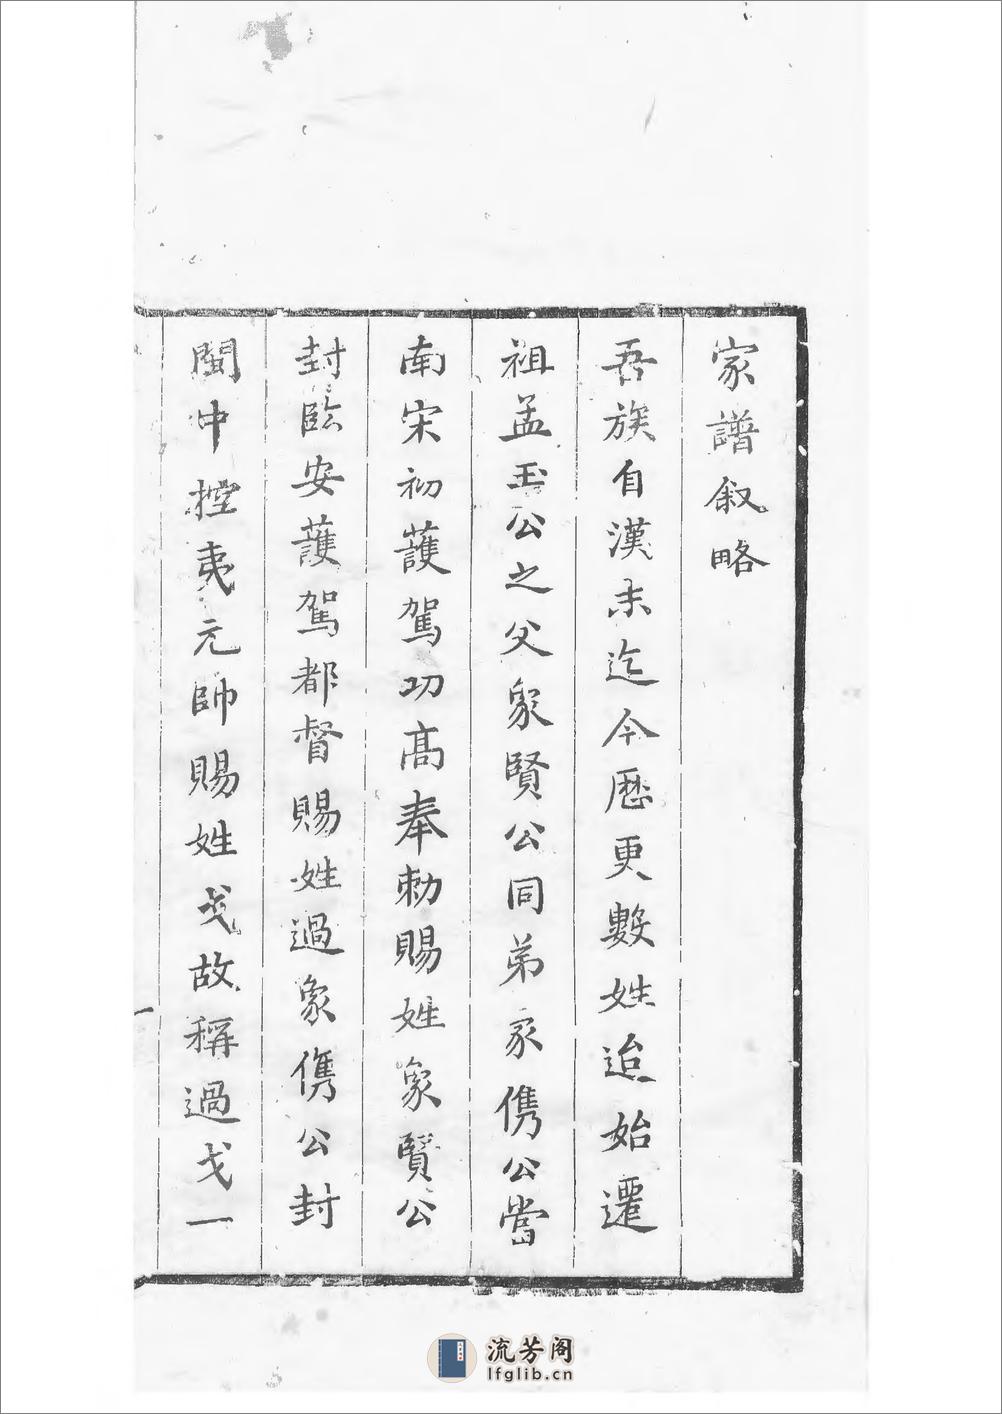 家譜叙略
吾族自漢末迄今歷更數姓迨始遷
祖孟玉公之父象賢公同弟象儁公當
南宋初護駕功高奉勅賜姓象賢公
封臨安護駕都督賜姓過象儁公封
閩中控夷元帥賜姓戈故稱過戈一
流芳阁
lfglib.cn